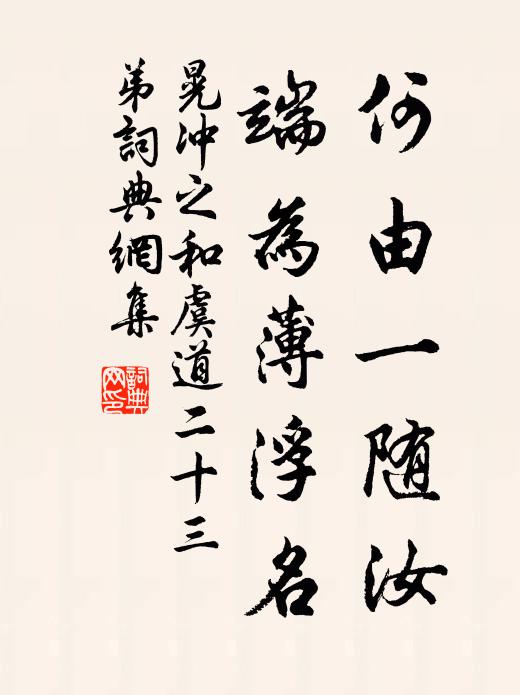 何由一随汝
端為薄浮名
晁冲之和虞道二十三
弟詞典網集
詞典
网印